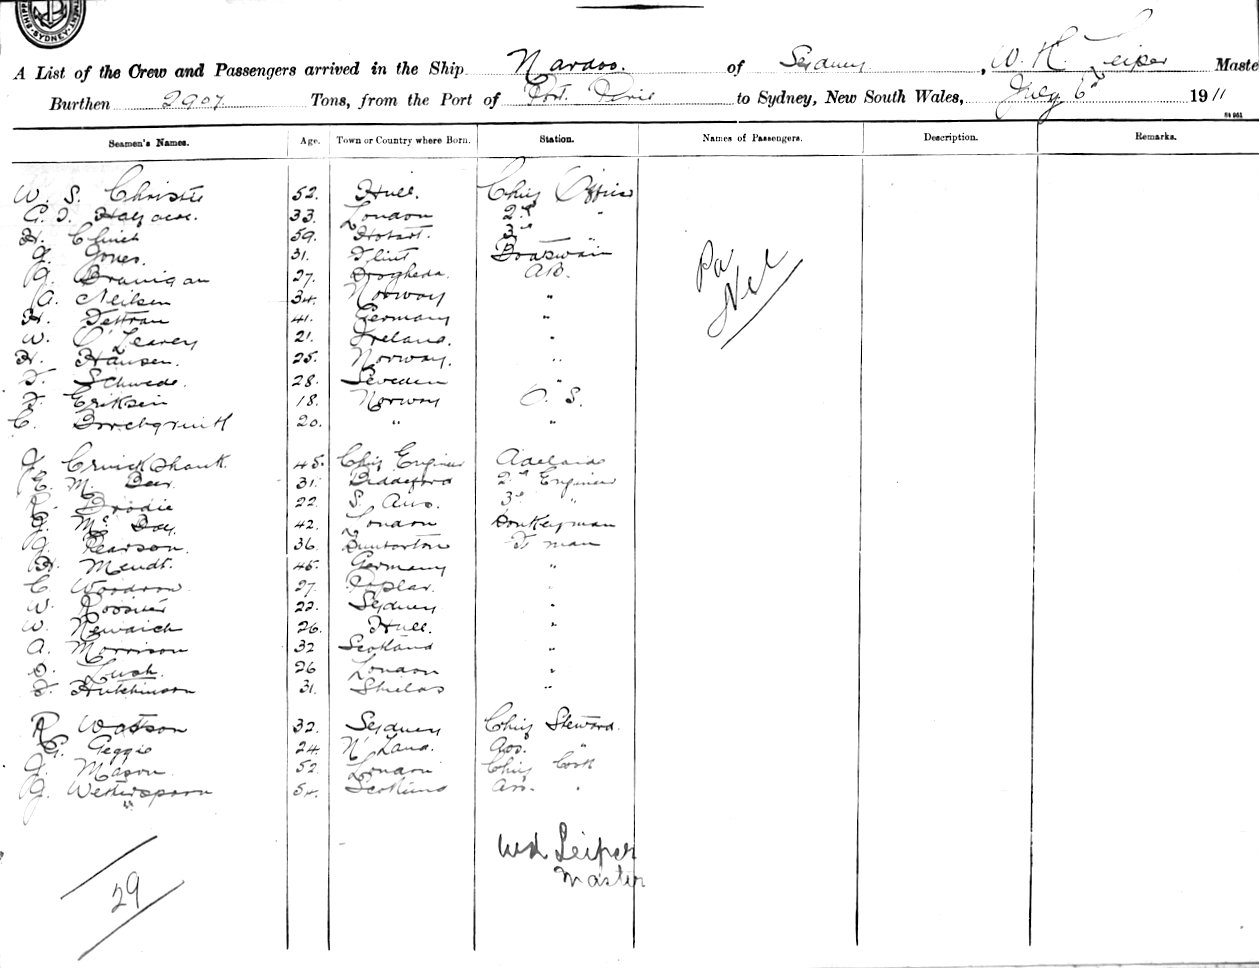 SYDNEY
A List of the Crew and Passengers arrived in the Ship Nardoo. of Sydney, W. H. Leiper Maste
Burthen 2907 Tons, from the Port of Port Pirie to Sydney, New South Wales, July 6th 1911
Seamen's Names. Age. Town or Country where Born. Station. Names of Passengers. Description. Remarks.
W. S. Christie 52. Hull. Chief Officer
G. T. 33. London 2nd "
H. 59. Hobart. 3rd "
J. Jones. 31. Flint Boatswain
J. Branigan 27. Drogheda. A.B.
A. Neilsen 34. Norway "
H. 41. Germany "
W. O'Leary 21. Ireland. "
H. Hansen. 25. Norway. "
F. Schwede. 28. Sweden "
F. Eriksen 18. Norway O. S.
C. 20. " "
Pa
Nil
J. Cruickshank. 45. Chief Engineer Adelaide
E. M. Beer. 31. Biddeford 2nd Engineer
R. Brodie 22 S. Aus. 3rd "
J. Mc 42. London Donkeyman
J. Pearson. 36. Dumbarton F man
H. Mendt. 45. Germany "
C. Woodrow 27. Poplar. "
W. 22. Sydney "
W. 26. Hull. "
A. Morrison 32 Scotland "
D. Lush. 26 London "
F. Hutchinson 31. Shields "
R. Watson 32. Sydney Chief Steward.
G. Geggie 24. N' Land. Ass. "
J. Mason 52. London Chief Cook
J. Wetherspoon 54. Scotland Ass. "
"
WH Leiper
Master
29